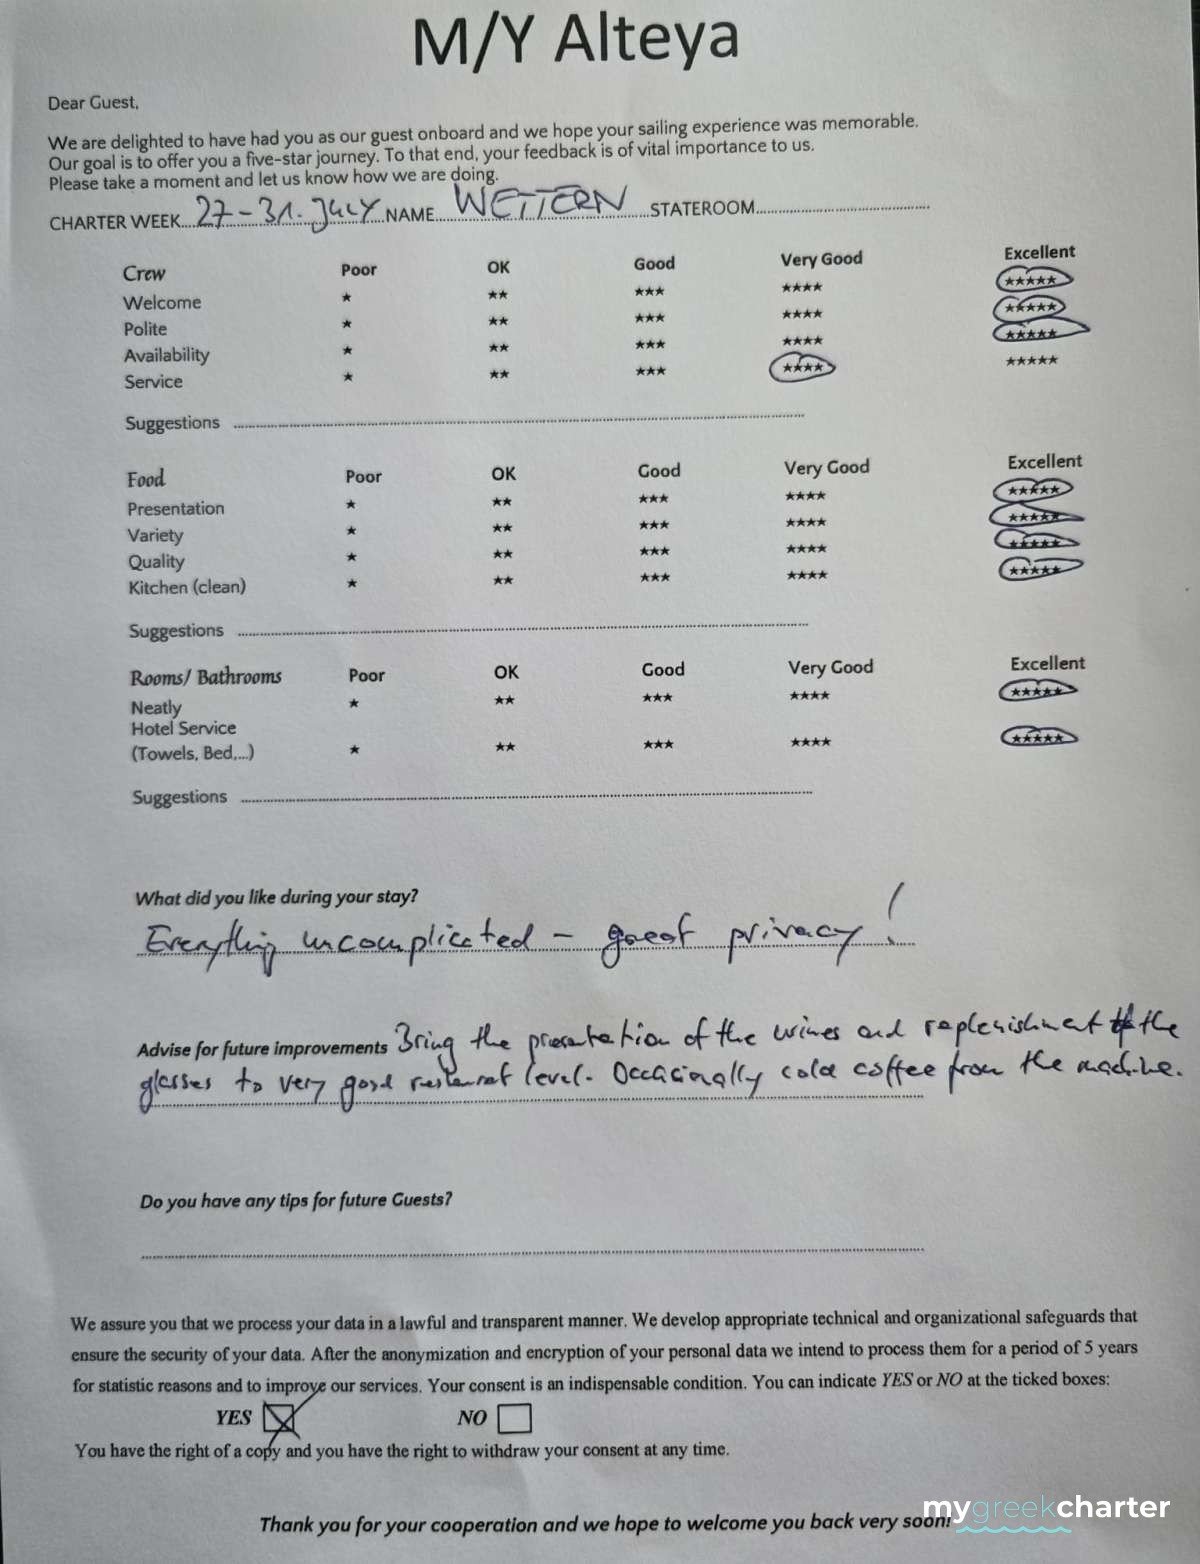 M/Y Alteya
Dear Guest,
We are delighted to have had you as our guest onboard and we hope your sailing experience was memorable.
Our goal is to offer you a five-star journey. To that end, your feedback is of vital importance to us.
Please take a moment and let us know how we are doing.
CHARTER WEEK....27-31. July...NAME...WETTERN......STATEROOM..............................
Crew Poor OK Good Very Good Excellent
Welcome ★ ★★ ★★★ ★★★★ ★★★★★
Polite ★ ★★ ★★★ ★★★★ ★★★★★
Availability ★ ★★ ★★★ ★★★★ ★★★★★
Service ★ ★★ ★★★ ★★★★ ★★★★★
Suggestions ..............................
Food Poor OK Good Very Good Excellent
Presentation ★ ★★ ★★★ ★★★★ ★★★★★
Variety ★ ★★ ★★★ ★★★★ ★★★★★
Quality ★ ★★ ★★★ ★★★★ ★★★★★
Kitchen (clean) ★ ★★ ★★★ ★★★★ ★★★★★
Suggestions ..............................
Rooms/ Bathrooms Poor OK Good Very Good Excellent
Neatly ★ ★★ ★★★ ★★★★ ★★★★★
Hotel Service
(Towels, Bed,...) ★ ★★ ★★★ ★★★★ ★★★★★
Suggestions ..............................
What did you like during your stay?
Everything uncomplicated - great privacy!
Advise for future improvements Bring the presentation of the wines and replenishment of the
glasses to very good restaurant level. Occasionally cold coffee from the machine.
Do you have any tips for future Guests?
We assure you that we process your data in a lawful and transparent manner. We develop appropriate technical and organizational safeguards that
ensure the security of your data. After the anonymization and encryption of your personal data we intend to process them for a period of 5 years
for statistic reasons and to improve our services. Your consent is an indispensable condition. You can indicate YES or NO at the ticked boxes:
YES NO
You have the right of a copy and you have the right to withdraw your consent at any time.
Thank you for your cooperation and we hope to welcome you back very soon!
mygreekcharter